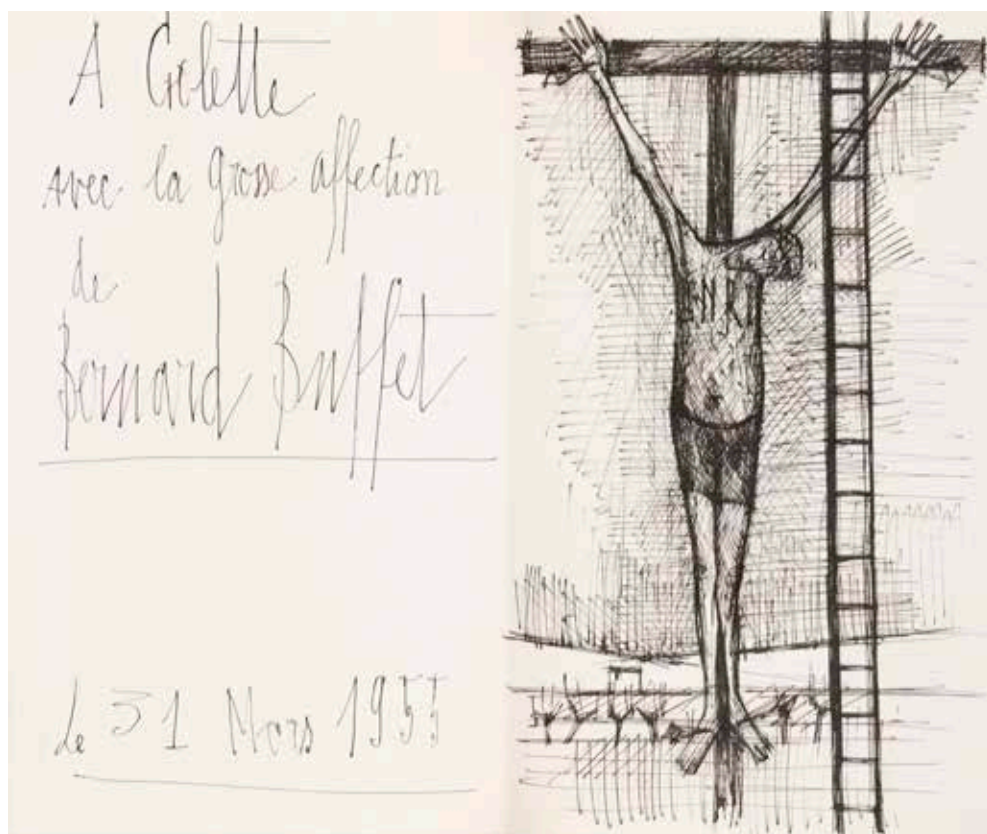 A Colette
avec la grosse affection
de
Bernard Buffet
le 31 Mars 1955